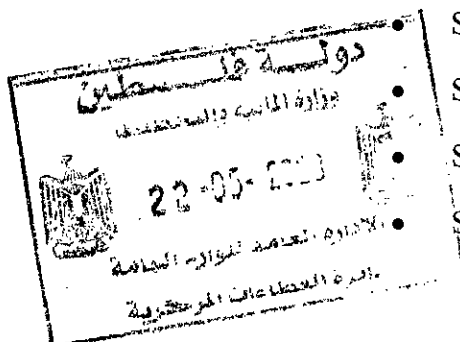 دولة فلسطين
وزارة المالية والتخطيط
22-05-
الإدارة العامة للوازم العامة
دائرة العطاءات المركزية
• S
• S
• S
• S